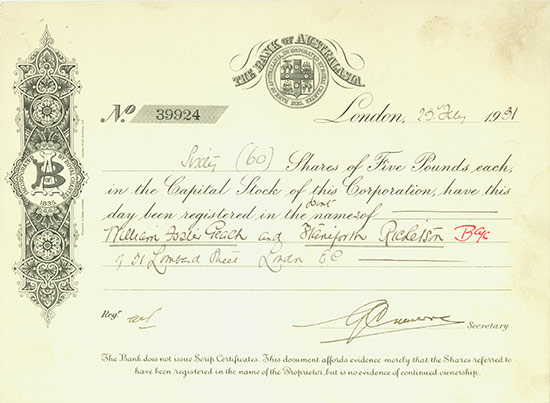 THE BANK OF AUSTRALASIA.
INCORPORATED BY ROYAL CHARTER, 1835.
No. 39924 London, 1931
Sixty (60) Shares of Five Pounds each,
in the Capital Stock of this Corporation, have this
joint
day been registered in the names of
William Foster and Staniforth Ricketson
of 51 Lombard Street London EC
INCORPORATED BY ROYAL CHARTER
B of A
1835.
Regd. Secretary
The Bank does not issue Scrip Certificates. This document affords evidence merely, that the Shares referred to
have been registered in the name of the Proprietor, but is no evidence of continued ownership.